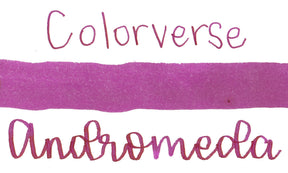 Colorverse
Andromeda